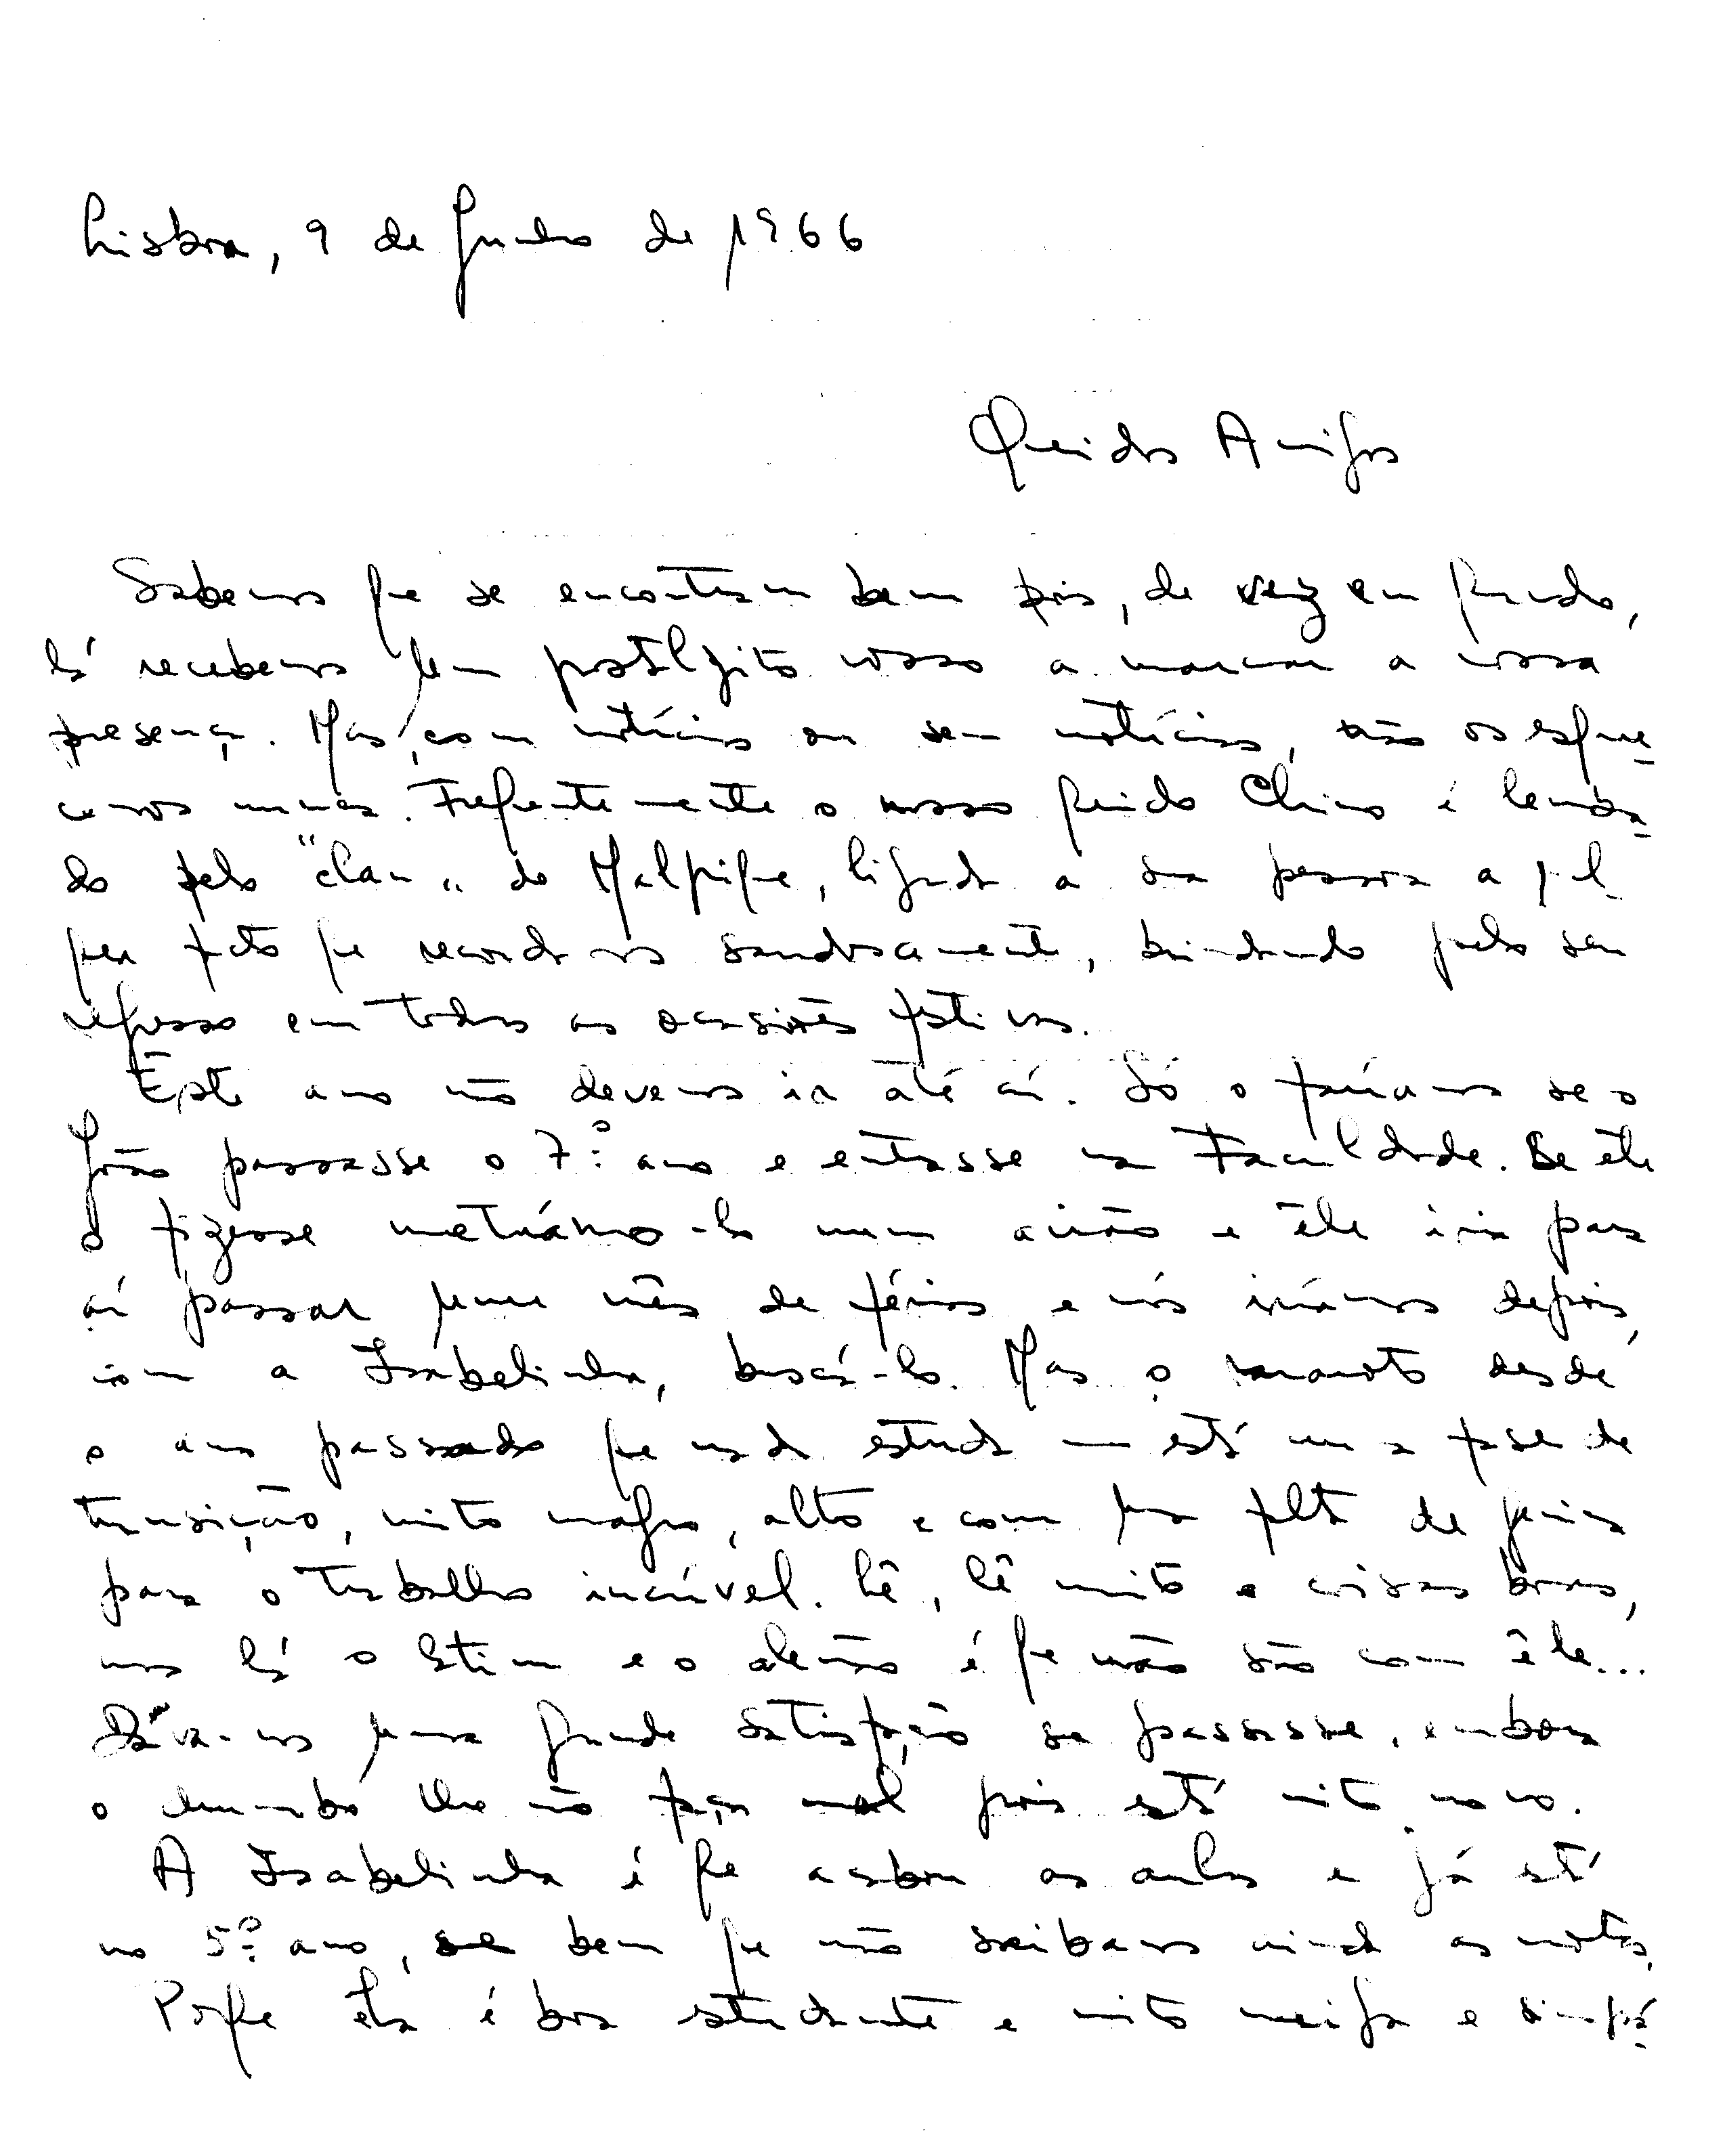 Lisboa, 9 de Junho de 1966
Queridos Amigos
Sabemos que se encontram bem pois, de vez em quando,
lá recebemos um postalzito vosso a marcar a vossa
presença. Mas, com notícias ou sem notícias, não os esque-
cemos nunca. Frequentemente o nosso querido Chino é lembra-
do pelo "clan" de Malpique, ligada a sua pessoa a qual-
quer facto que recordamos saudosamente, brindando pelo seu
regresso em todas as ocasiões festivas.
Êste ano não devemos ir até aí. Só o faríamos se o
João passasse o 7.º ano e entrasse na Faculdade. Se êle
o fizesse metíamo-lo num avião e êle iria para
aí passar um mês de férias e nós iríamos depois,
com a Isabelinha, buscá-lo. Mas o maroto desde
o ano passado que nada estuda — está numa fase de
transição, muito magro, alto e com uma falta de genica
para o trabalho incrível. Lê, lê muito e coisas boas,
mas lá o latim e o alemão é que não são com êle...
Dava-nos uma grande satisfação se passasse, embora
o chumbo lhe não faça mal pois está muito novo.
A Isabelinha é que acabou as aulas e já está
no 5.º ano, se bem que não saibamos ainda as notas.
Porque ela é boa estudante e muito meiga e simpá-